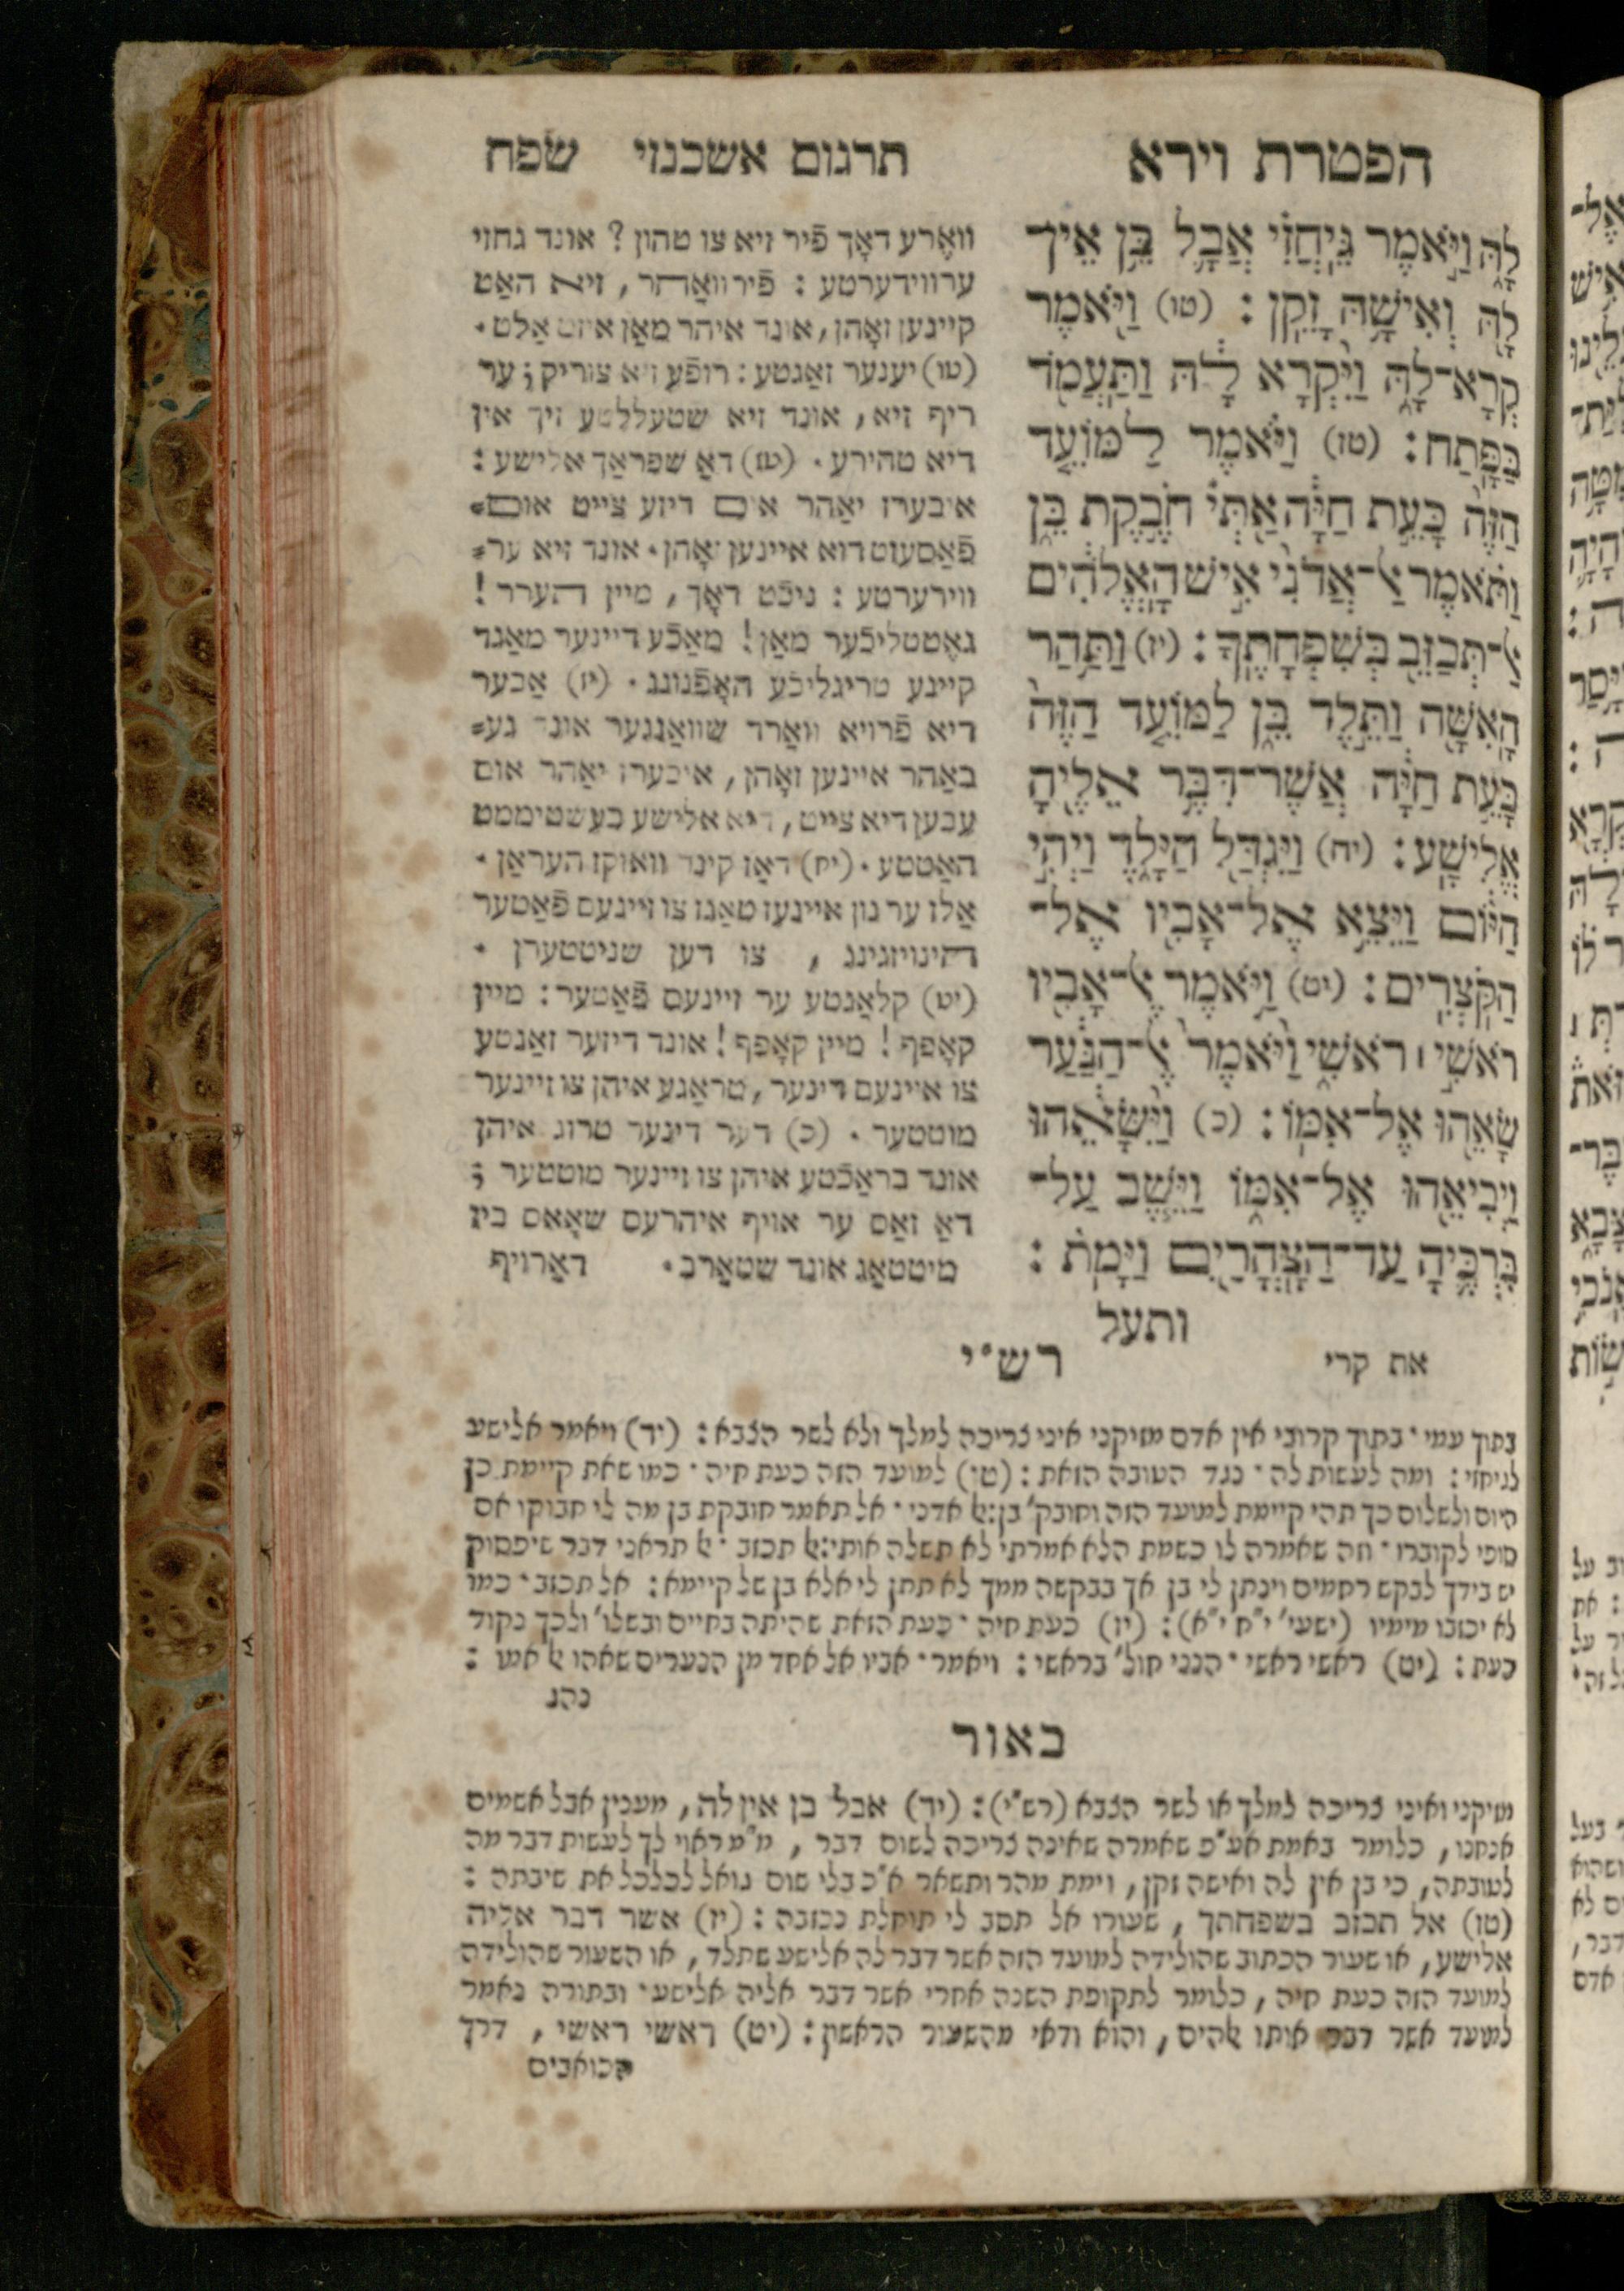 הפטרת וירא
תרגום אשכנזי שפח
לָהּ וַיֹּאמֶר גֵּיחֲזִי אֲבָל בֵּן אֵין־
לָהּ וְאִישָׁהּ זָקֵן : (טו) וַיֹּאמֶר
קְרָא־לָהּ וַיִּקְרָא לָהּ וַתַּעֲמֹד
בַּפָּתַח : (טז) וַיֹּאמֶר לַמּוֹעֵד
הַזֶּה כָּעֵת חַיָּה אַתְּי חֹבֶקֶת בֵּן
וַתֹּאמֶר אַל־אֲדֹנִי אִישׁ הָאֱלֹהִים
אַל־תְּכַזֵּב בְּשִׁפְחָתֶךָ : (יז) וַתַּהַר
הָאִשָּׁה וַתֵּלֶד בֵּן לַמּוֹעֵד הַזֶּה
כָּעֵת חַיָּה אֲשֶׁר־דִּבֶּר אֵלֶיהָ
אֱלִישָׁע : (יח) וַיִּגְדַּל הַיָּלֶד וַיְהִי
הַיּוֹם וַיֵּצֵא אֶל־אָבִיו אֶל־
הַקֹּצְרִים : (יט) וַיֹּאמֶר אֶל־אָבִיו
רֹאשִׁי ׀ רֹאשִׁי וַיֹּאמֶר אֶל־הַנַּעַר
שָׂאֵהוּ אֶל־אִמּוֹ : (כ) וַיִּשָּׂאֵהוּ
וַיְבִיאֵהוּ אֶל־אִמּוֹ וַיֵּשֶׁב עַל־
בִּרְכֶּיהָ עַד־הַצָּהֳרַיִם וַיָּמֹת :
ותעל
את קרי
וואָרע דאָך פֿיר זיא צו טהון ? אונד גחזי
ערווידערטע : פֿיר וואַהר , זיא האַט
קיינען זאָהן , אונד איהר מאַן איזט אַלט .
(טו) יענער זאַגטע : רופֿע זיא צוריק ; ער
ריף זיא , אונד זיא שטעללטע זיך אין
דיא טהירע . (טז) דאַ שפראַך אלישע :
איבערז יאַהר אום דיזע צייט אום=
פֿאַסעזט דוא איינען זאָהן . אונד זיא ער=
ווידערטע : ניכֿט דאָך , מיין העררר !
געטטליכֿער מאַן ! מאַכֿע דיינער מאַגד
קיינע טריגליכֿע האָפֿנונג . (יז) אַבער
דיא פֿרויא וואַרד שוואַנגער אונד גע=
באַהר איינען זאָהן , איבערז יאַהר אום
עבען דיא צייט , דיא אלישע בעשטיממט
האַטטע . (יח) דאַז קינד וואוקז העראַן .
אַלז ער נון איינעז טאַגז צו זיינעם פֿאַטער
הינויזגינג , צו דען שניטטערן .
(יט) קלאַגטע ער זיינעם פֿאַטער : מיין
קאָפף ! מיין קאָפף ! אונד דיזער זאַגטע
צו איינעם דינער , טראַגע איהן צו זיינער
מוטטער . (כ) דער דינער טרוג איהן
אונד בראַכֿטע איהן צו זיינער מוטטער ;
דאַ זאַס ער אויף איהרעם שאָאס ביז
מיטטאַג אונד שטאַרב . דאַרויף
רש"י
בתוך עמי · בתוך קרובי אין אדם מזיקני איני צריכה למלך ולא לשר הצבא : (יד) ויאמר אלישע
לגיחזי : ומה לעשות לה · כנגד הטובה הזאת : (טז) למועד הזה כעת חיה · כמו שאת קיימת כן
היום ולשלום כך תהי קיימת למועד הזה וחובק' בן : אל אדני · אל תאמר חובקת בן מה לי חבוקו אם
סופי לקוברו · וזה שאמרה לו כשמת הלא אמרתי לא תשלה אותי : אל תכזב · אל תראני דבר שיפסוק
יש בידך לבקש רחמים וינתן לי בן אך בבקשה ממך לא תתן לי אלא בן של קיימא : אל תכזב · כמו
לא יכזבו מימיו (ישעי' נ"ח י"א) : (יז) כעת חיה · כעת הזאת שהיתה בחיים ובשלו' ולכך נקוד
כעת : (יט) ראשי ראשי · הנני חול' בראשי : ויאמר · אביו אל אחד מן הנערים שאהו אל אמו :
נהג
באור
מזיקני ואיני צריכה למלך או לשר הצבא (רש"י) : (יד) אבל בן אין לה , מענין אבל אשמים
אנחנו , כלומר באמת אע"פ שאמרה שאינה צריכה לשום דבר , מ"מ ראוי לך לעשות דבר מה
לטובתה , כי בן אין לה ואישה זקן , וימת מהר ותשאר א"כ בלי שום גואל לכלכל את שיבתה :
(טז) אל תכזב בשפחתך , שעורו אל תסב לי תוחלת נכזבה : (יז) אשר דבר אליה
אלישע , או שעור הכתוב שהולידה למועד הזה אשר דבר לה אלישע שתלד , או השעור שהולידה
למועד הזה כעת חיה , כלומר לתקופת השנה אחרי אשר דבר אליה אלישע · ובתורה נאמר
למועד אשר דבר אותו אלהים , והוא ודאי מהשעור הראשון : (יט) ראשי ראשי , דרך
הכואבים